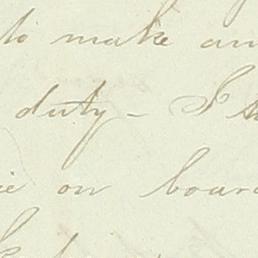 to make an
duty - I
on boar